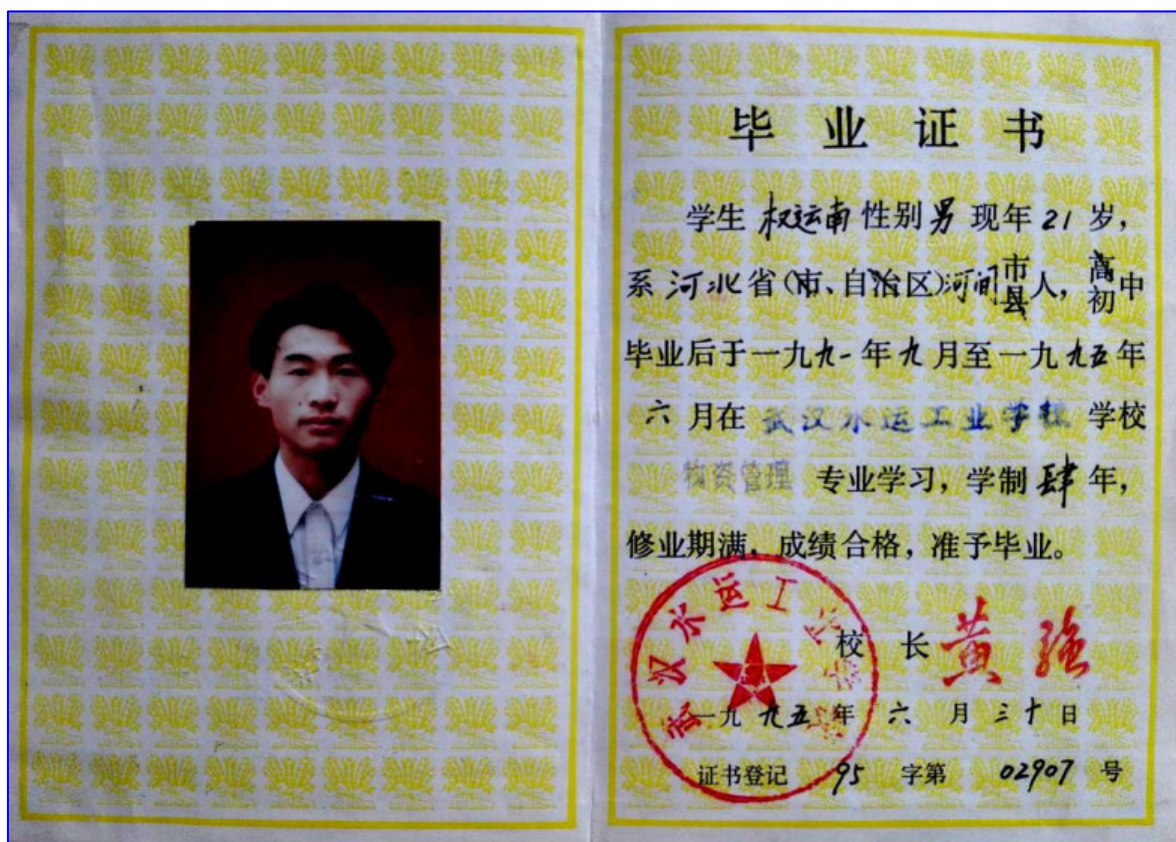 毕业证书
学生 权运南 性别 男 现年 21 岁,
系 河北 省(市、自治区)河间 市县 人, 高初 中
毕业后于一九九一年九月至一九九五年
六月在 武汉水运工业学校 学校
物资管理 专业学习, 学制 肆 年,
修业期满, 成绩合格, 准予毕业。
武汉水运工业学校
校 长 黄强
一九九五年 六 月 三十日
证书登记 95 字第 02907 号